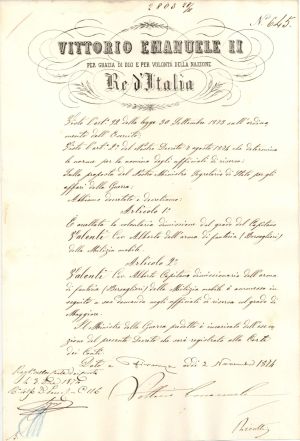 2803
N° 645.
VITTORIO EMANUELE II
PER GRAZIA DI DIO E PER VOLONTÀ DELLA NAZIONE
Re d'Italia
Visto l'art. della legge 30 Settembre 1873 sull'ordina
mento dell'Esercito.
Visto l'art. del Decreto agosto 1874 che determina
le norme per la nomina degli ufficiali di riserva.
Sulla proposta del Nostro Ministro Segretario di Stato per gli
affari della Guerra.
Abbiamo decretato e decretiamo:
Articolo 1°
È accettata la volontaria dimissione dal grado del Capitano
Valenti Cav Alberto dell'arma di fanteria (Bersaglieri)
della Milizia mobile.
Articolo 2°
Valenti Cav Alberto Capitano dimissionario dell'arma
di fanteria (Bersaglieri) della Milizia mobile è ammesso in
seguito a sua domanda negli ufficiali di riserva col grado di
Maggiore.
Il Ministro della Guerra predetto è incaricato dell'ese
cuzione del presente Decreto che sarà registrato alla Corte
dei Conti.
Dato a Firenze addì 2 Novembre 1874
Vittorio Emanuele
Ricotti